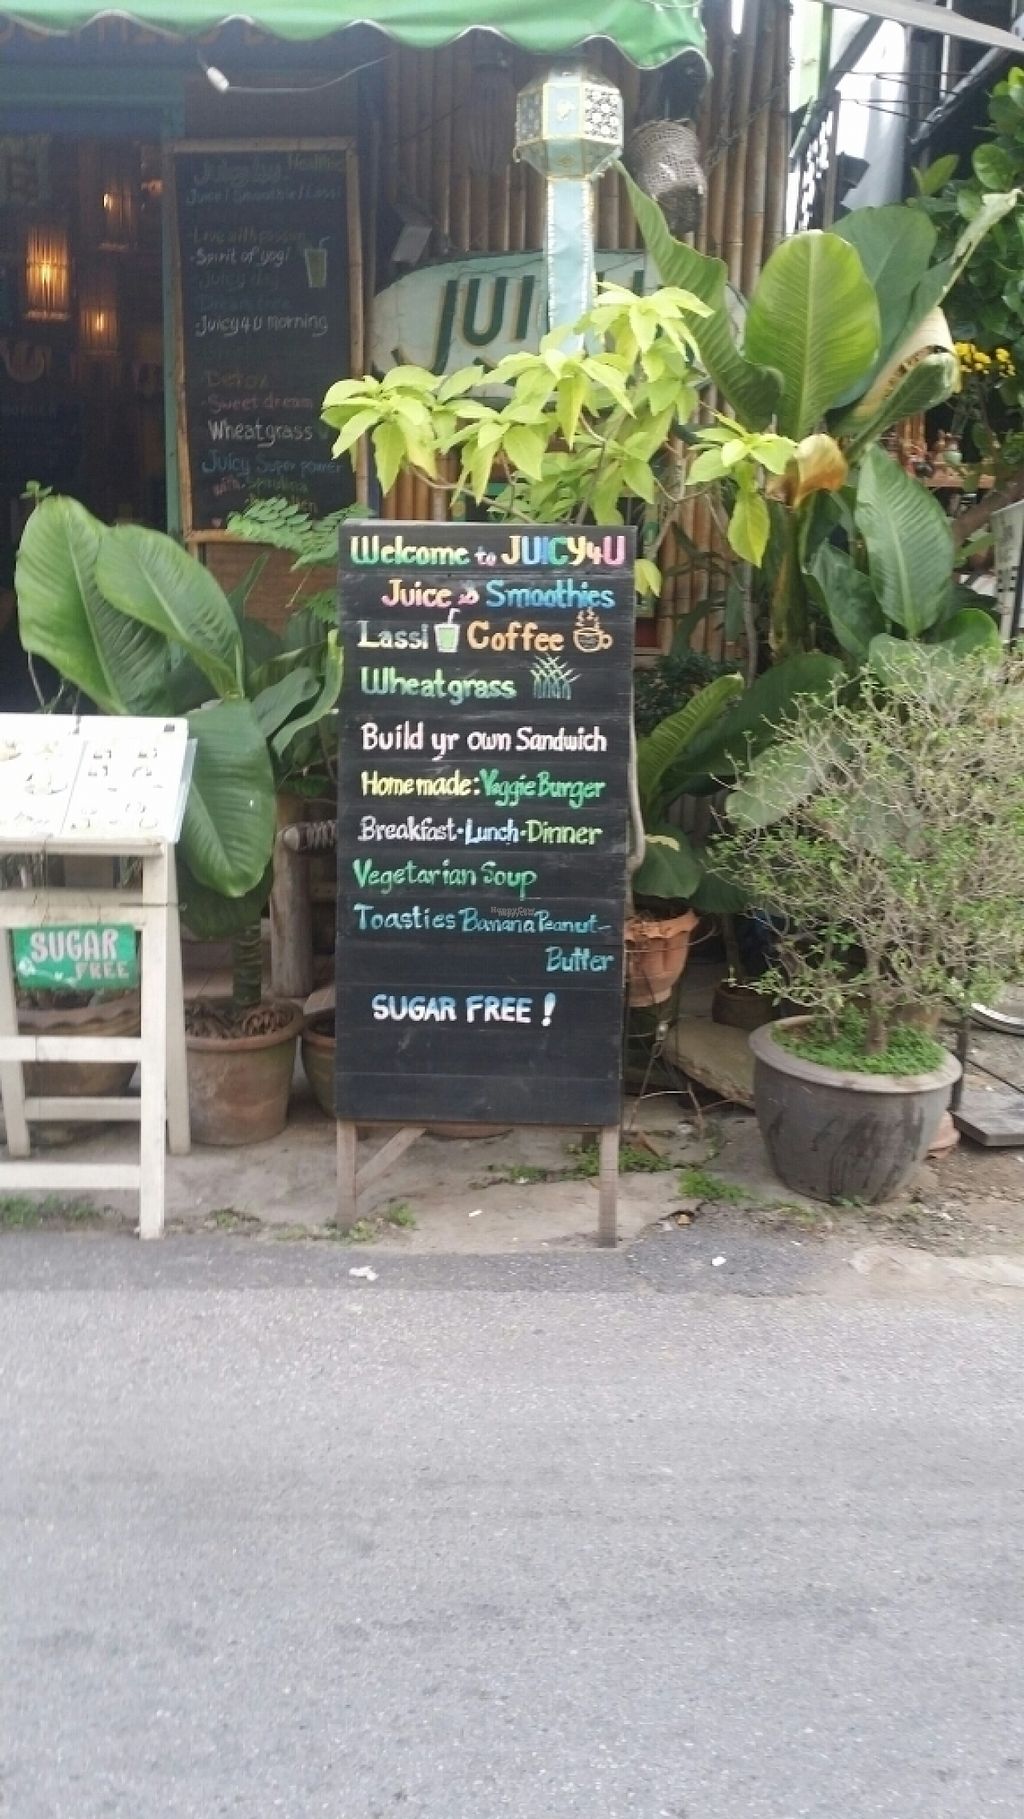 Juice / Smoothie / Lassi
- Spirit of yogi
Juicy day
- Juicy4U morning
Detox
- Sweet dream
Wheatgrass
Juicy Super power
with Spirulina
JUI
Welcome to JUICY4U
Juice Smoothies
Lassi Coffee
Wheatgrass
Build yr own Sandwich
Homemade: Veggie Burger
Breakfast · Lunch · Dinner
Vegetarian Soup
Toasties Banana Peanut-
Butter
SUGAR FREE !
HappyCow
SUGAR
FREE